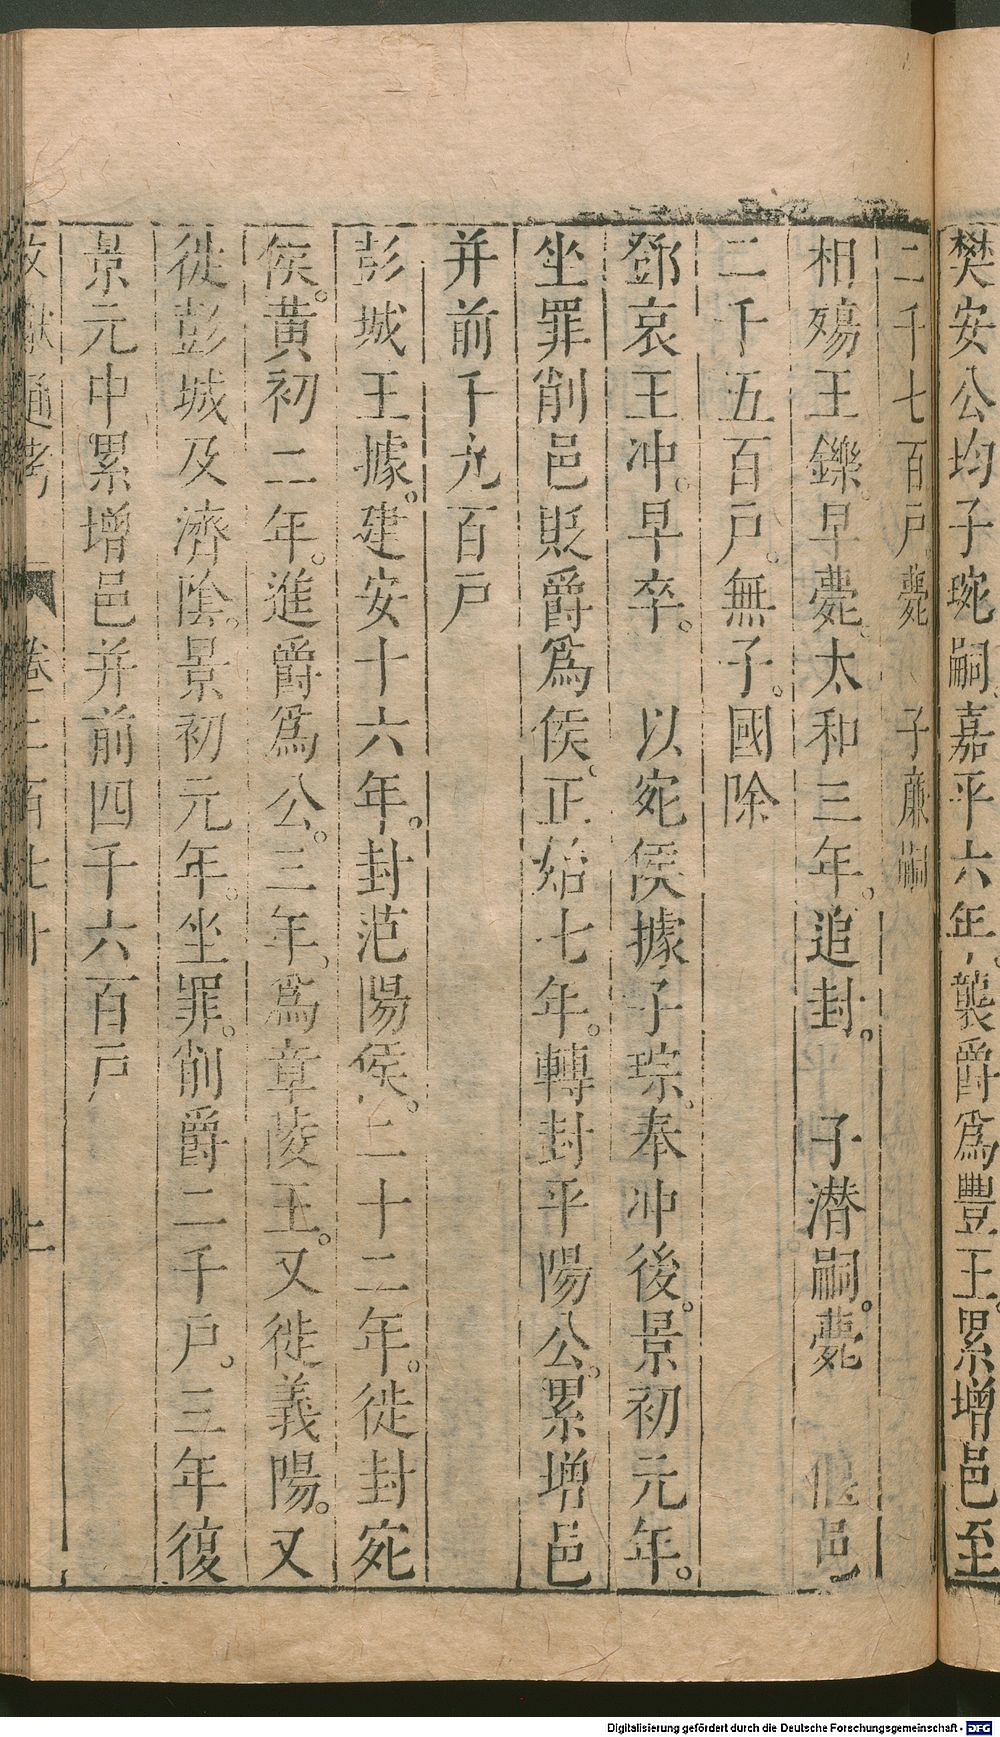 樊安公均子琬嗣嘉平六年襲爵爲豐王。累增邑至
二千七百戶薨 子廉嗣
相殤王鑠。早薨。太和三年。追封。 子潛嗣。薨 偃 邑
二千五百戶。無子。國除
鄧哀王冲。早卒。 以宛侯據子琮。奉冲後。景初元年。
坐罪削邑貶爵爲侯。正始七年。轉封平陽公。累增邑
并前千九百戶
彭城王據。建安十六年。封范陽侯。二十二年。徙封宛
侯。黃初二年。進爵爲公。三年。爲章陵王。又徙義陽。又
徙彭城及濟陰。景初元年。坐罪。削爵二千戶。三年復
景元中累增邑并前四千六百戶
文獻通考 卷二百七十 上
Digitalisierung gefördert durch die Deutsche Forschungsgemeinschaft - DFG